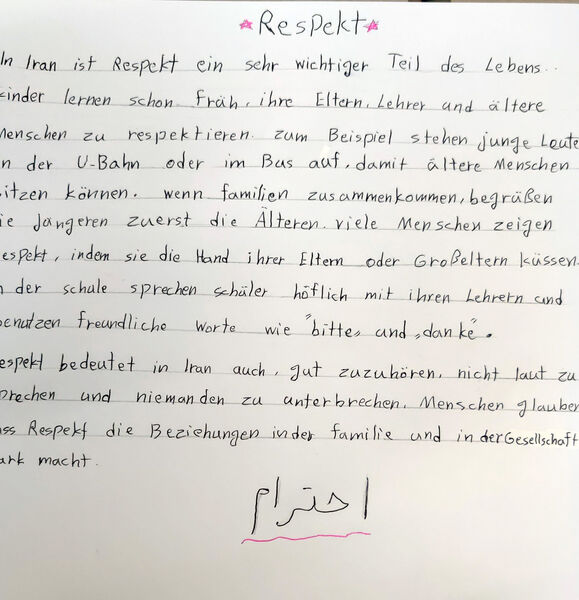 Respekt
In Iran ist Respekt ein sehr wichtiger Teil des Lebens..
kinder lernen schon früh, ihre Eltern, Lehrer und ältere
Menschen zu respektieren. zum Beispiel stehen junge Leute
in der U-Bahn oder im Bus auf, damit ältere Menschen
sitzen können. wenn familien zusammenkommen, begrüßen
die jüngeren zuerst die Älteren. viele Menschen zeigen
Respekt, indem sie die Hand ihrer Eltern oder Großeltern küssen.
in der schule sprechen schüler höflich mit ihren Lehrern und
benutzen freundliche worte wie "bitte" und "danke".
Respekt bedeutet in Iran auch, gut zuzuhören, nicht laut zu
sprechen und niemanden zu unterbrechen. Menschen glauben
dass Respekt die Beziehungen in der familie und in der Gesellschaft
stark macht.
احترام